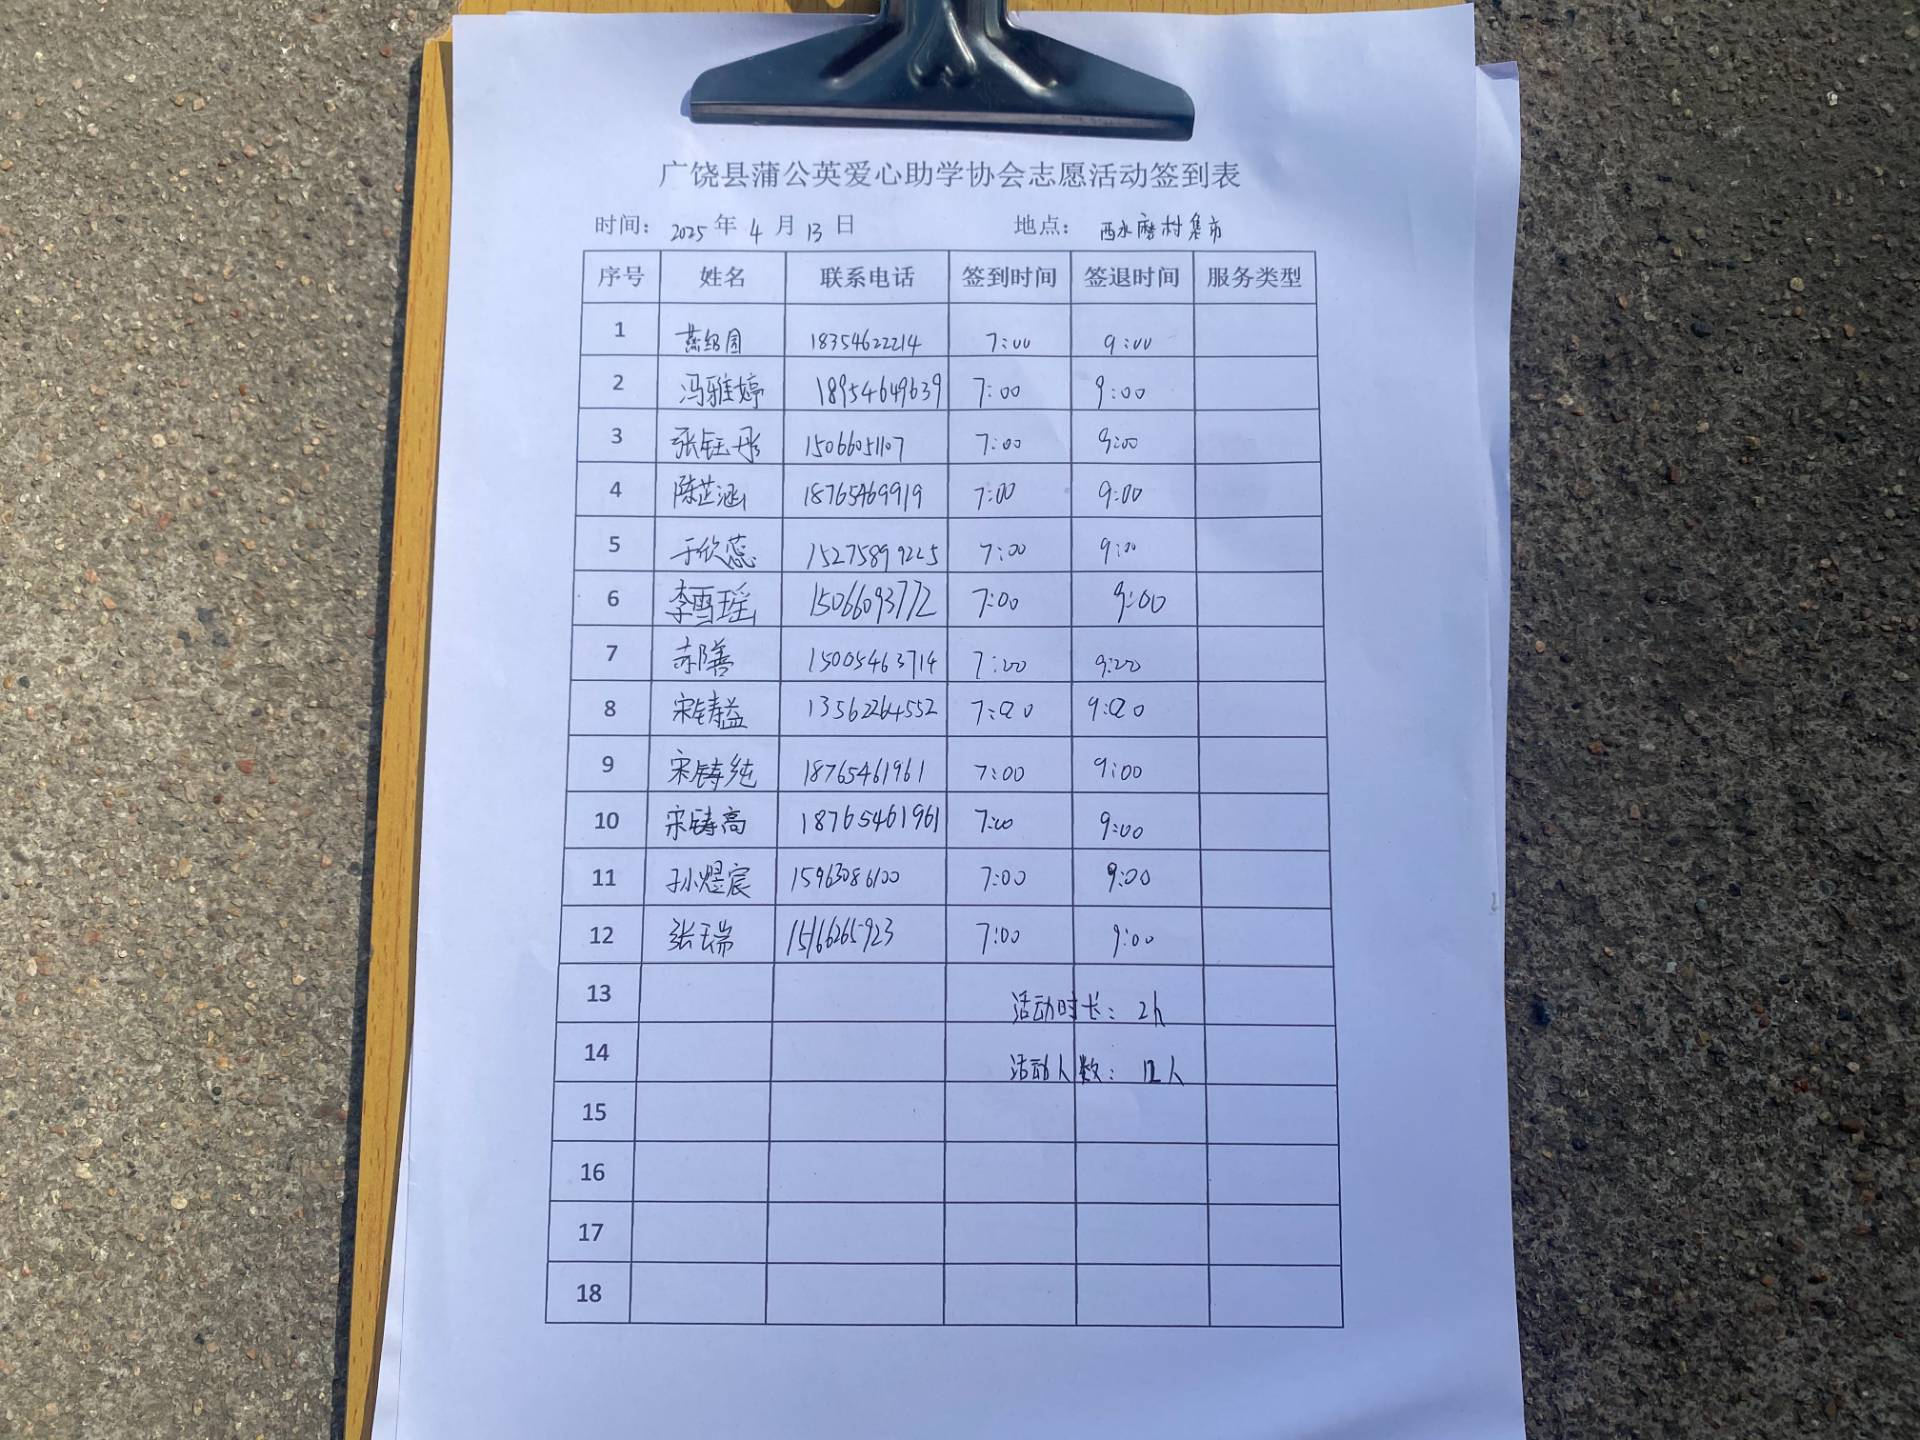 广饶县蒲公英爱心助学协会志愿活动签到表
时间： 2025 年 4 月 13 日 地点： 西水磨村集市
序号 姓名 联系电话 签到时间 签退时间 服务类型
1 燕绍国 18354622214 7:00 9:00
2 冯雅婷 18954649639 7:00 9:00
3 张钰彤 15066051107 7:00 9:00
4 陈芷涵 18765469919 7:00 9:00
5 于欣蕊 15275899225 7:00 9:00
6 李雪瑶 15066093772 7:00 9:00
7 郝善 15005463714 7:00 9:00
8 宋铸益 13562264552 7:00 9:00
9 宋铸纯 18765461961 7:00 9:00
10 宋铸高 18765461961 7:00 9:00
11 孙煜宸 15963086100 7:00 9:00
12 张瑞 15166265923 7:00 9:00
13 活动时长：2h
14 活动人数：12人
15
16
17
18